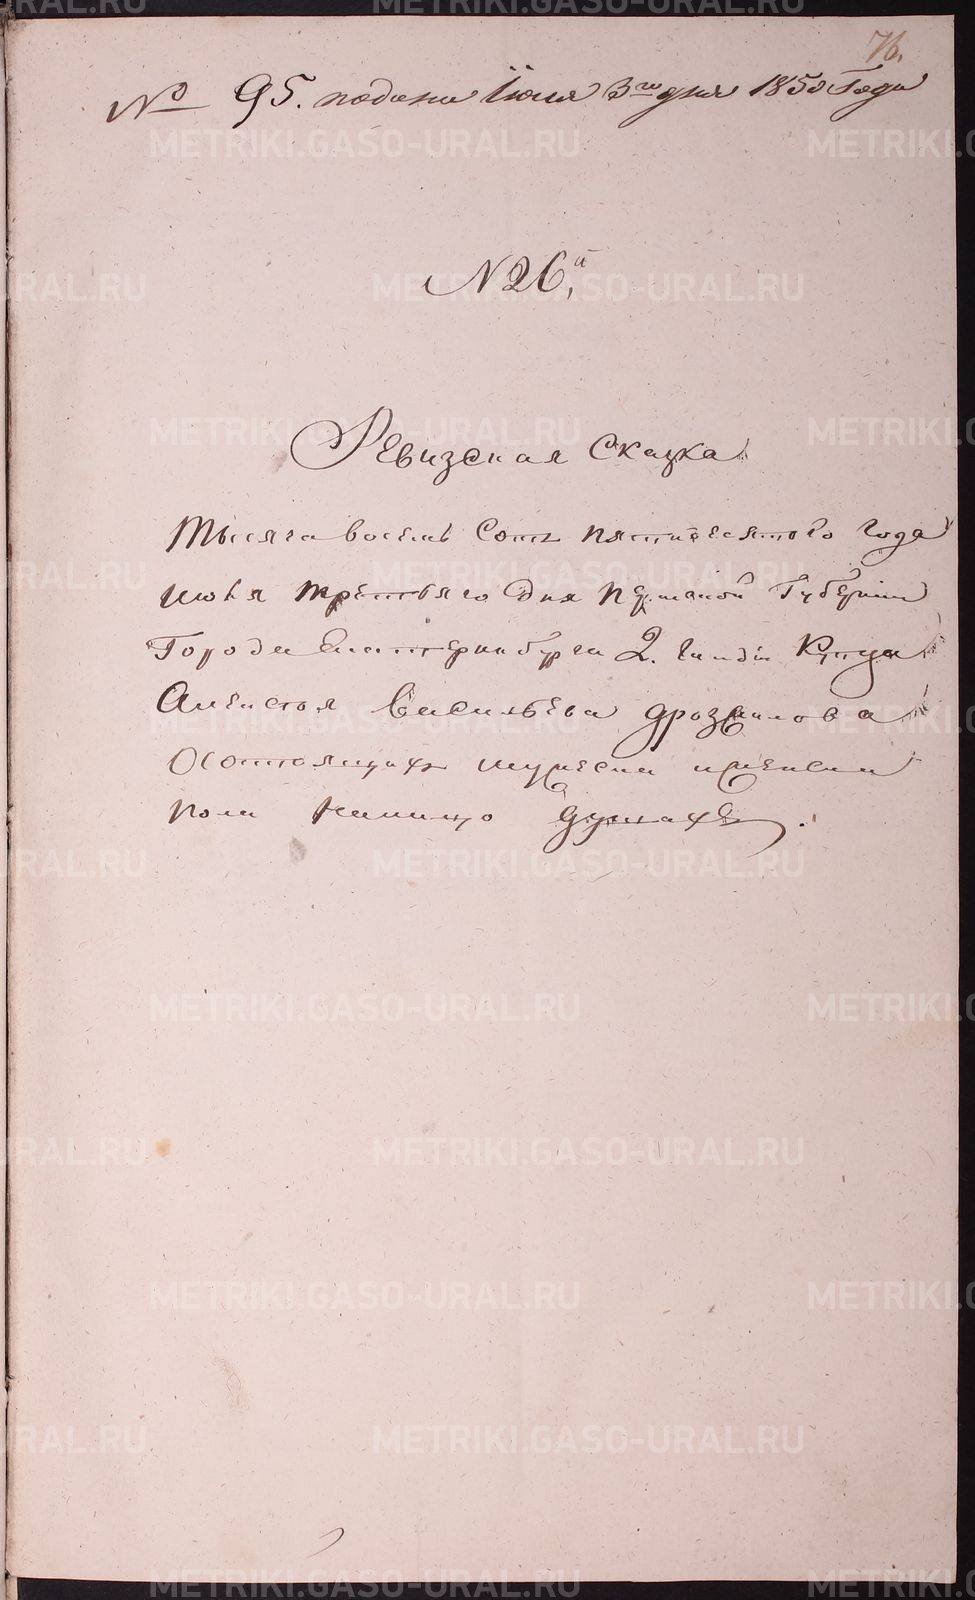 76.
№ 95. подана Июля 3го дня 1850 Года
N 26,й
Ревизская Сказка
Тысяча восемь Сотъ пятидесятого года
июля третьяго Дня Пермской Губернии
Города Екатеринбурга 2. гилдіи Купца
Алексея Васильева Дрозжилова
Осостоящихъ мужеска иженска
пола налицо душахъ.
METRIKI.GASO-URAL.RU